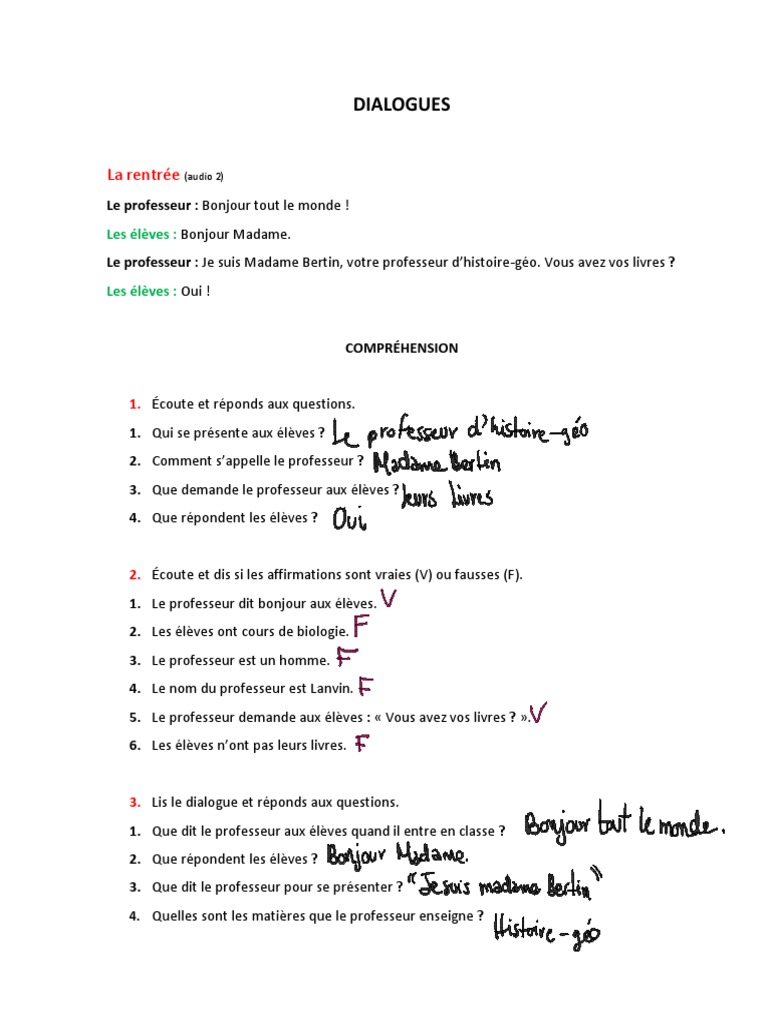 DIALOGUES
La rentrée (audio 2)
Le professeur : Bonjour tout le monde !
Les élèves : Bonjour Madame.
Le professeur : Je suis Madame Bertin, votre professeur d’histoire-géo. Vous avez vos livres ?
Les élèves : Oui !
COMPRÉHENSION
1. Écoute et réponds aux questions.
1. Qui se présente aux élèves ? Le professeur d'histoire-géo
2. Comment s’appelle le professeur ? Madame Bertin
3. Que demande le professeur aux élèves ? leurs livres
4. Que répondent les élèves ? Oui
2. Écoute et dis si les affirmations sont vraies (V) ou fausses (F).
1. Le professeur dit bonjour aux élèves. V
2. Les élèves ont cours de biologie. F
3. Le professeur est un homme. F
4. Le nom du professeur est Lanvin. F
5. Le professeur demande aux élèves : « Vous avez vos livres ? ». V
6. Les élèves n’ont pas leurs livres. F
3. Lis le dialogue et réponds aux questions.
1. Que dit le professeur aux élèves quand il entre en classe ? Bonjour tout le monde.
2. Que répondent les élèves ? Bonjour Madame.
3. Que dit le professeur pour se présenter ? "Je suis madame Bertin"
4. Quelles sont les matières que le professeur enseigne ? Histoire-géo